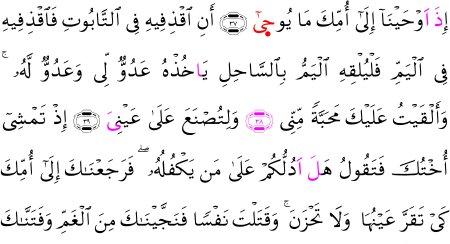 إِذَ اَوْحَيْنَآ إِلَىٰٓ أُمِّكَ مَا يُوحۭيٰٓ ﴿٣٧﴾ أَنِ اِقْذِفِيهِ فِى اِلتَّابُوتِ فَاقْذِفِيهِ
فِى اِلْيَمِّ فَلْيُلْقِهِ اِلْيَمُّ بِالسَّاحِلِ يَاخُذْهُ عَدُوٌّ لِّى وَعَدُوٌّ لَّهُۥ ۚ
وَأَلْقَيْتُ عَلَيْكَ مَحَبَّةً مِّنِّى ﴿٣٨﴾ وَلِتُصْنَعَ عَلَىٰ عَيْنِىَ ﴿٣٩﴾ إِذْ تَمْشِىٓ
أُخْتُكَ فَتَقُولُ هَلَ اَدُلُّكُمْ عَلَىٰ مَن يَكْفُلُهُۥ ۖ فَرَجَعْنَاكَ إِلَىٰٓ أُمِّكَ
كَىْ تَقَرَّ عَيْنُهَا وَلَا تَحْزَنَ ۚ وَقَتَلْتَ نَفْسًا فَنَجَّيْنَاكَ مِنَ اَلْغَمِّ وَفَتَنَّاكَ